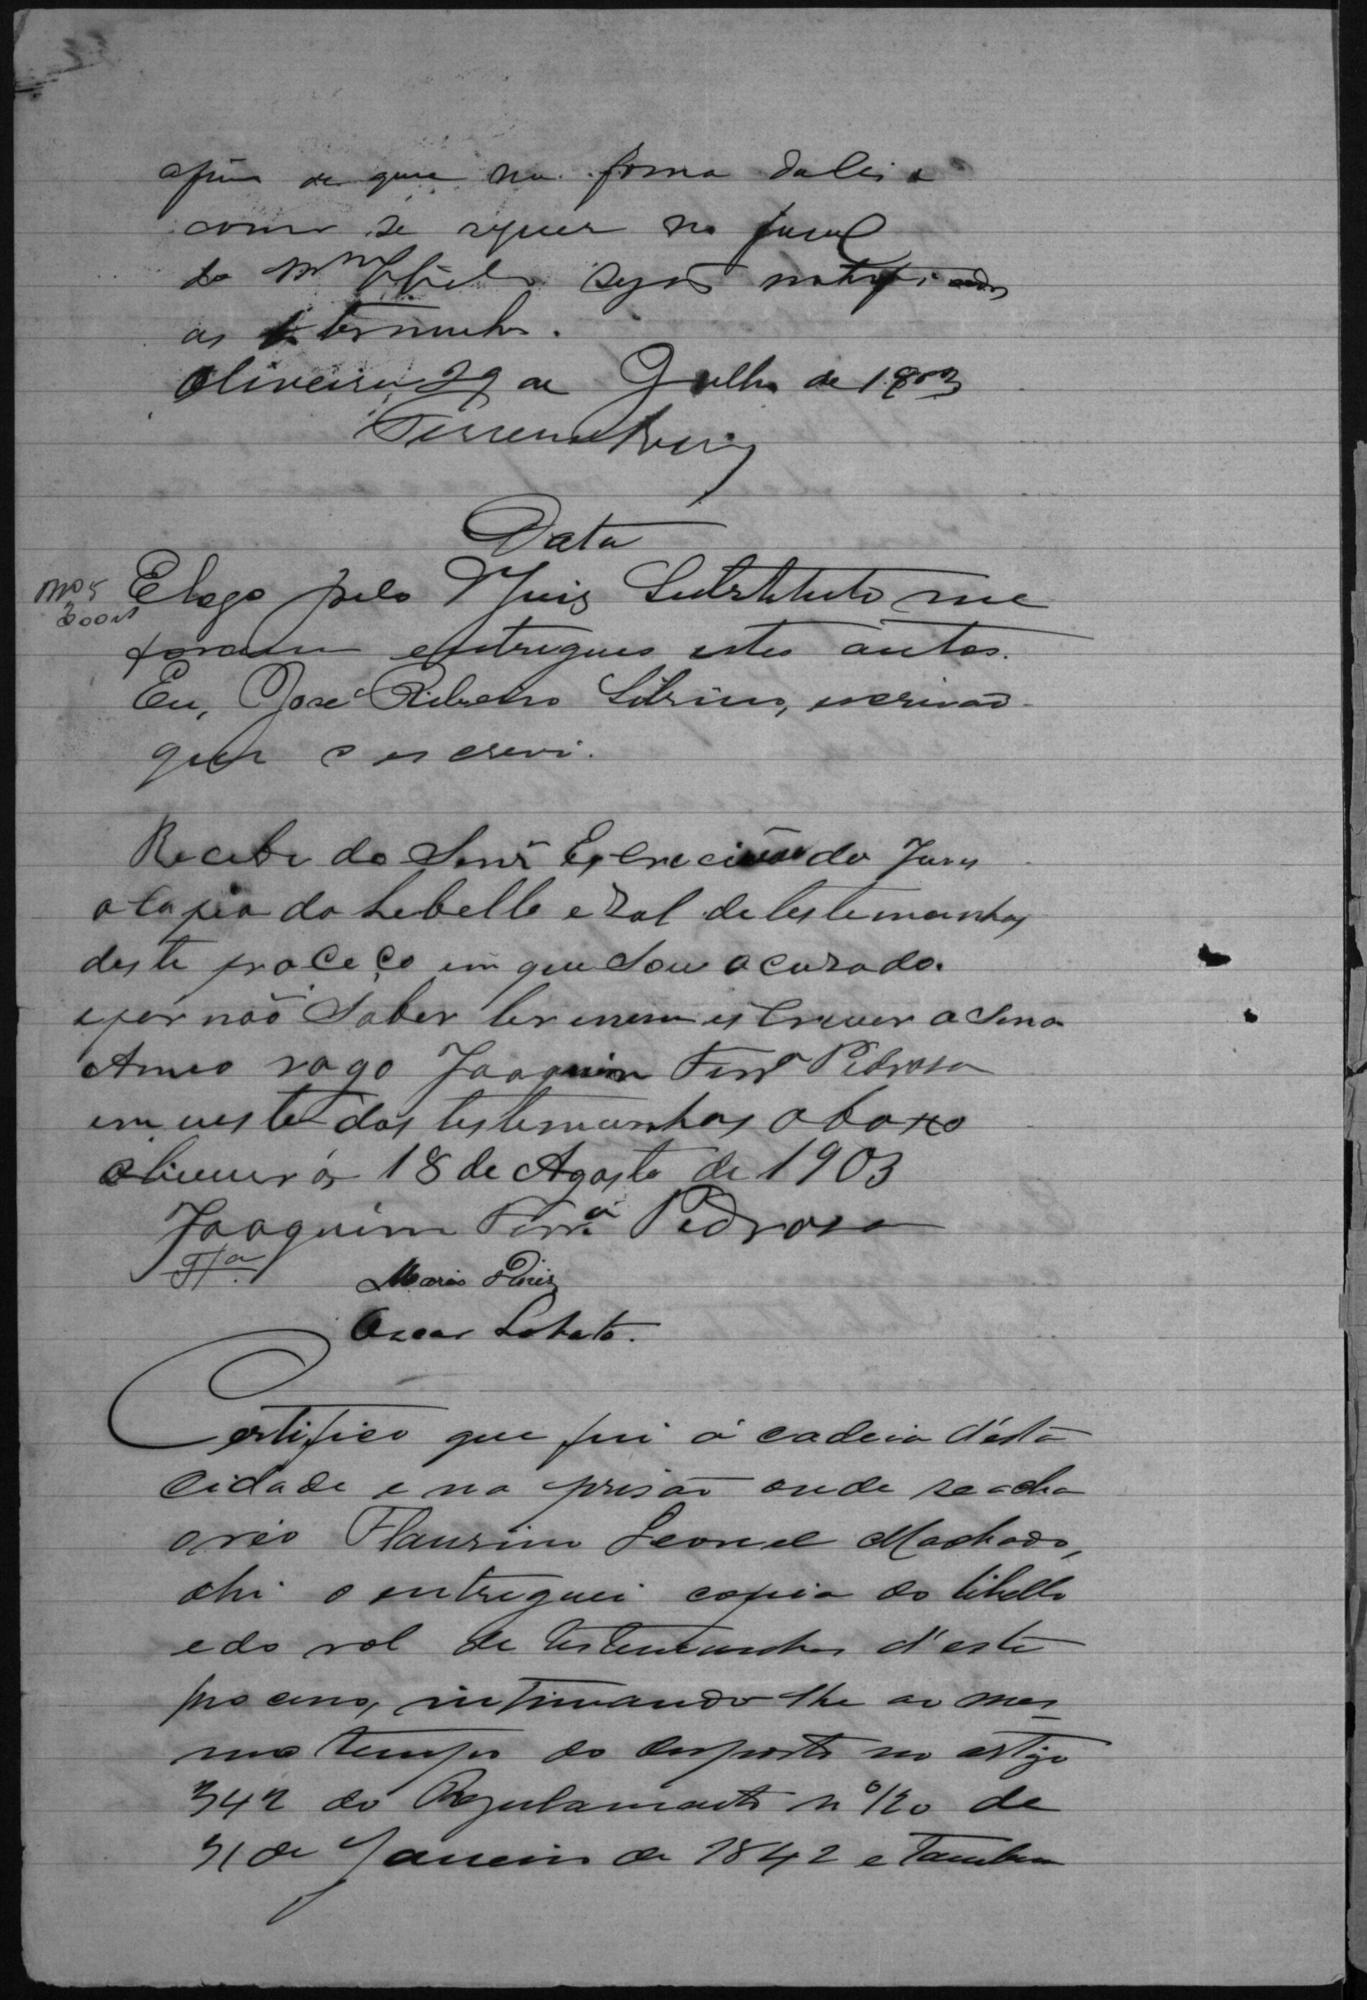 afim de que na forma da lei e
como se requer no final
do libello sejão notificados
as testemunhas.
Oliveira, 29 de Julho de 1903
Data
E logo pelo Juiz Substituto me
foram entregues estes autos.
Eu, José Ribeiro, escrivão
que o escrevi.
Recebi do Senr Escrivão do Jury
a copia do Libello e Rol de testemunhas
deste proceço em que Sou acuzado.
e por não Saber ler nem escrever acina
Ameo rogo Joaquim Ferrª Pedrosa
em veste das testemunhas abaxo
18 de Agosto de 1903
Joaquim Ferrª Pedrosa
Tªˢ
Mario
Oscar Lobato.
Certifico que fui á cadeia d'esta
cidade e na prisão onde se acha
o réo Flausino Leonel Machado,
ahi o entreguei copia do libello
e do rol de testemunhas d'este
processo, intimando-lhe ao mes-
mo tempo do disposto no artigo
342 do Regulamento nº 120 de
31 de Janeiro de 1842 e tambem